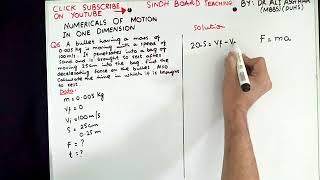 CLICK SUBSCRIBE
ON YOUTUBE
SINDH BOARD TEACHING
BY: DR ALI ASGHAR
(MBBS) (DUHS)
NUMERICALS OF MOTION
IN ONE DIMENSION
Q6 A bullet having a mass of
0.005 kg is moving with a speed of
100m/s. It penetrates into a bag of
sand and is brought to rest after
moving 25cm into the bag. Find the
decelerating force on the bullet. Also
Calculate the time in which it is brought
to rest.
Data
m = 0.005 kg
Vf = 0
Vi = 100 m/s
S = 25cm
0.25 m
F = ?
t = ?
Solution
2aS = Vf - V
F = ma